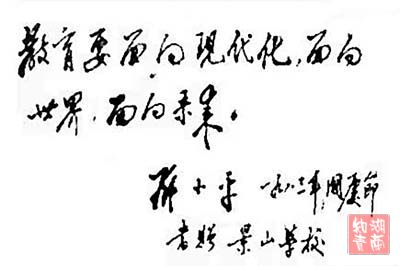 教育要面向现代化,面向
世界,面向未来。
邓小平 一九八三年国庆节
书赠景山学校
湖南